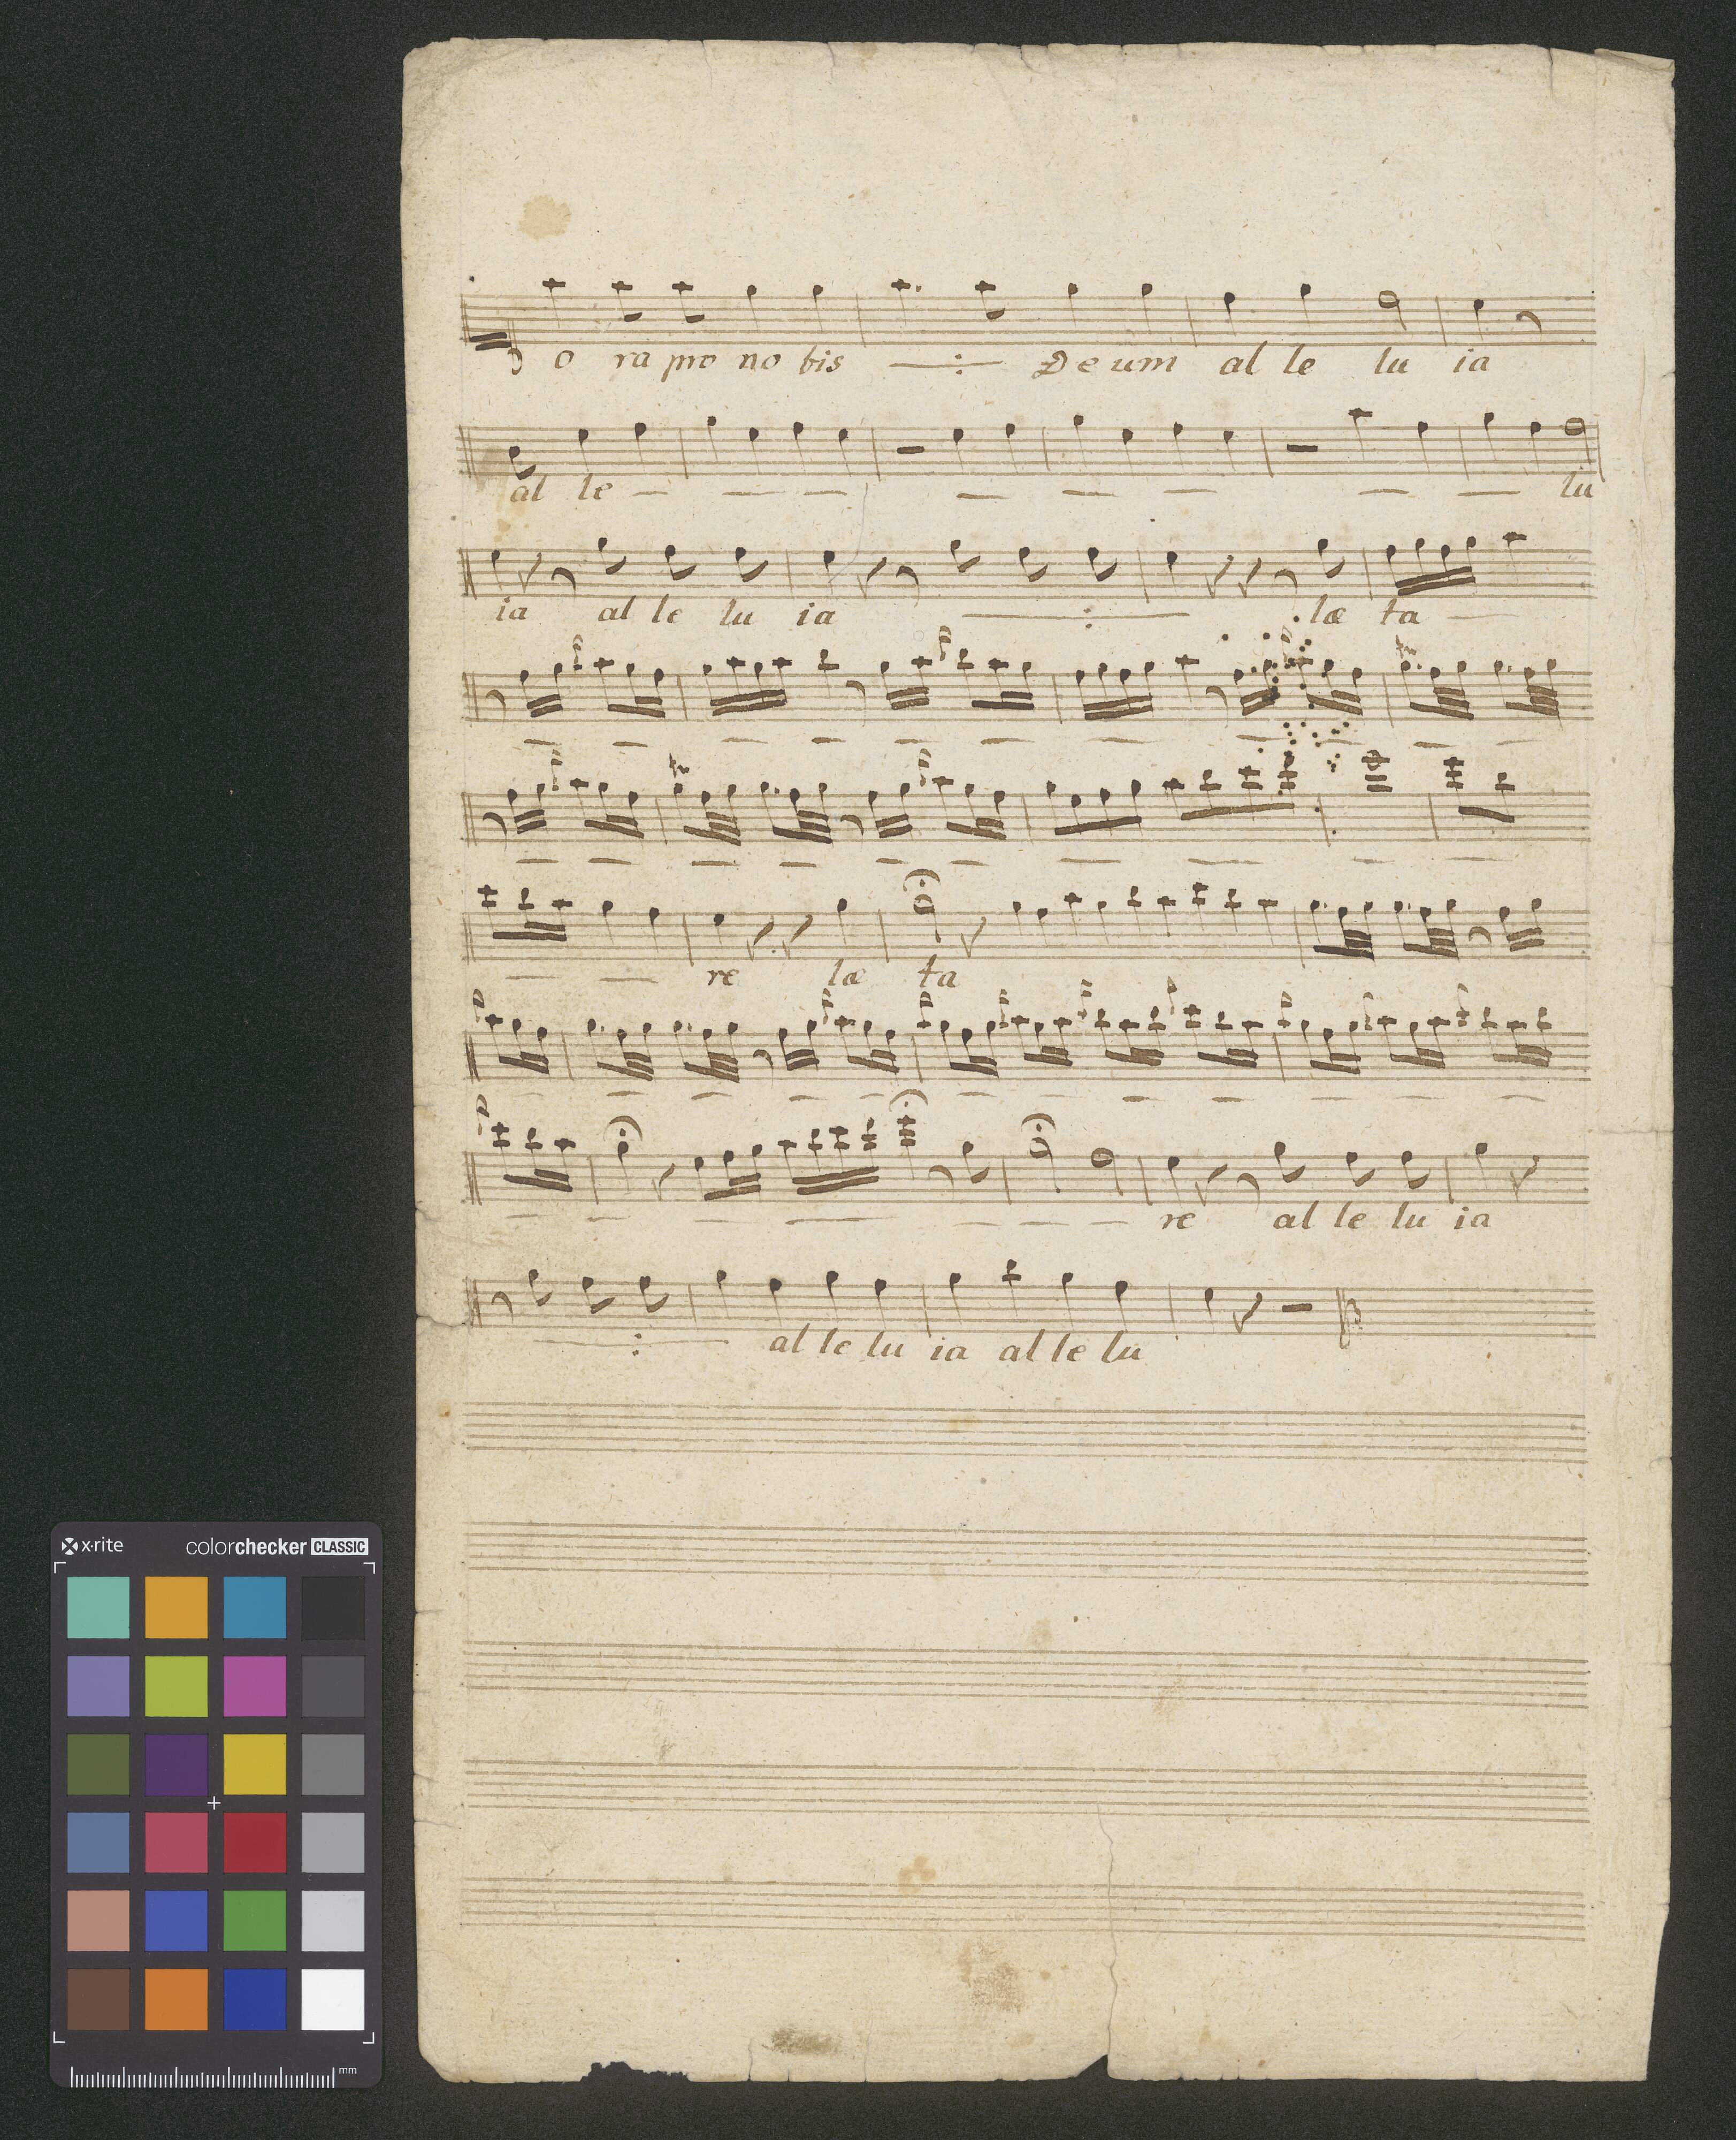 o ra pro no bis Deum al le lu ia
al le lu
ia al le lu ia læ ta
re læ ta
re al le lu ia
al le lu ia al le lu
x·rite colorchecker CLASSIC
mm